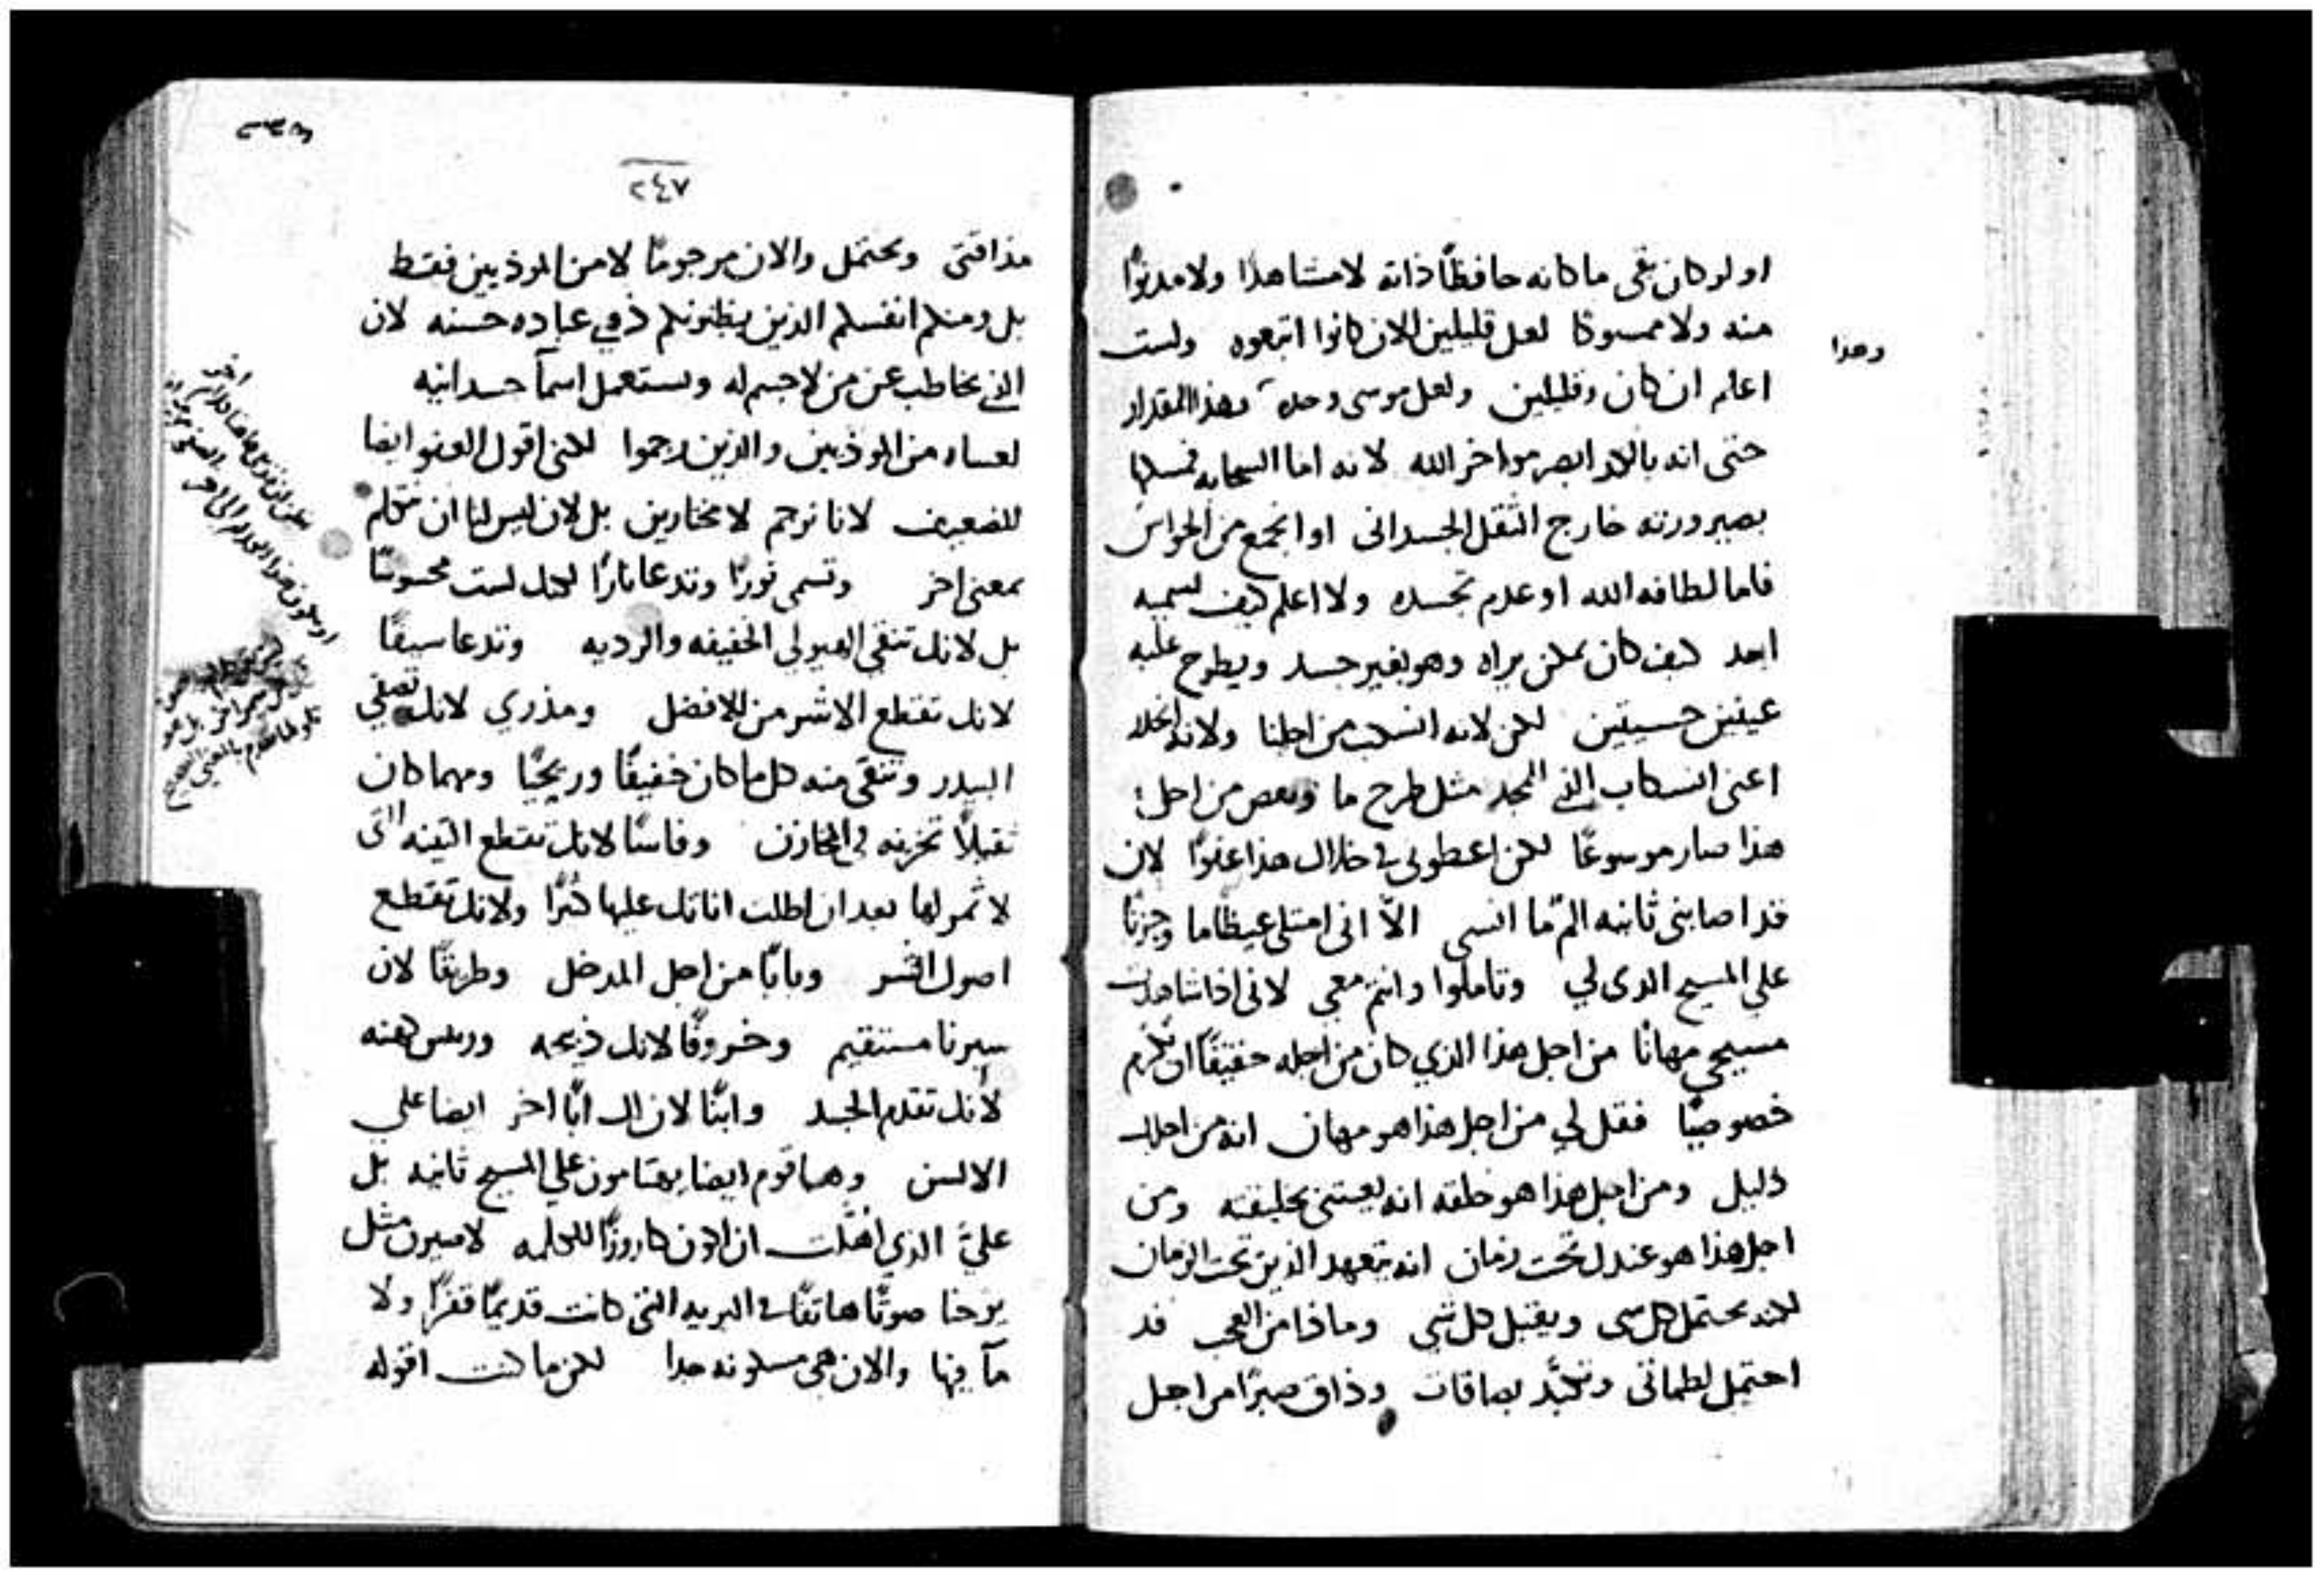 او لو كان بقى ما كانه حافظًا ذاته لا مشاهدًا ولا مدنوًا
منه ولا ممسوكا لعل قليلين الان كانوا اتبعوه ولست
وهذا
اعلم ان كان وقليلين ولعل موسى وحده بهذا المقدار
حتى انه بالكد ابصر مواخر الله لانه اما السحابه فسلها
بصيرورته خارج الثقل الجسداني او اجمع من الحواس
فاما لطافه الله او عدم تجسده ولا اعلم كيف نسميه
ابعد كيف كان يمكن يراه وهو بغير جسد ويطرح عليه
عينين حسيتين لكن لانه انسكب من اجلنا ولانه انحدر
اعني انسكاب المجد مثل طرح ما ونقص من اجل
هذا صار موسوعًا لكن اعطوني في خلال هذا عفوًا لان
قد اصابني ثانيه الم ما انسي الا انى امتلي غيظًا ما وحزنًا
على المسيح الذى لي وتاملوا وانتم معي لانى اذا شاهدت
مسيحي مهانًا من اجل هذا الذي كان من اجله حقيقًا ان يكرم
خصوصيًا فقل لي من اجل هذا هو مهان انه من اجلك
ذليل ومن اجل هذا هو خلقه انه يعتني بخليقته ومن
اجل هذا هو عندك تحت زمان انه يتعهد الذين تحت الزمان
لكنه يحتمل كل شي ويقبل كل شي وماذا من العجب قد
احتمل لطمات وتكبد بصاقات وذاق صبرًا من اجل
٢٤٧
مذاقتى ويحتمل والان مرجومًا لا من الموذيين فقط
بل ومنكم انفسكم الذين يظنونكم ذوي عباده حسنه لان
الذي يخاطب عن من لا جسم له ويستعمل اسمآ جسدانيه
لعساه من الموذيين والذين رجموا لكنى اقول العفو ايضا
للضعيف لانا نرجم لا مختارين بل لان ليس لنا ان نتكلم
بمعنى اخر وتسمى نورًا وتدعا نارًا لعلك لست محسوسًا
بل لانك تنقي الهيولى الخفيفه والرديه وتدعا سيفًا
لانك تقطع الاشر من الافضل ومذري لانك تصفي
البيدر وتنقي منه كل ما كان خفيفًا وريحيًا ومهما كان
ثقيلًا تخزنه في المخازن وفاسًا لانك تقطع التينه التى
لا ثمر لها بعد ان اطلت اناتك عليها كثيرًا ولانك تقطع
اصول الشر وبابًا من اجل المدخل وطريقًا لان
سيرنا مستقيم وخروفًا لانك ذبيحه وريس كهنه
لأنك تقدم الجسد وابنًا لان الك ابًا اخر ايضا علي
الالسن وهما قوم ايضا يهتامون علي المسيح ثانيه بل
عليَّ الذي اهلت ان اكون كاروزًا للكلمه لاصيرن مثل
يوحنا صوتًا هاتفًا في البريه التى كانت قديمًا قفرًا ولا
مآ فيها والان هي مسكونه جدا لكن ما كنت اقوله